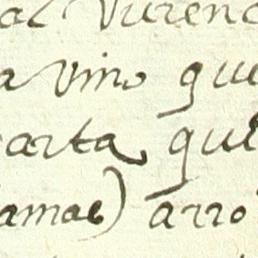 al Vuren
a vino que
carta qu
amas) arro